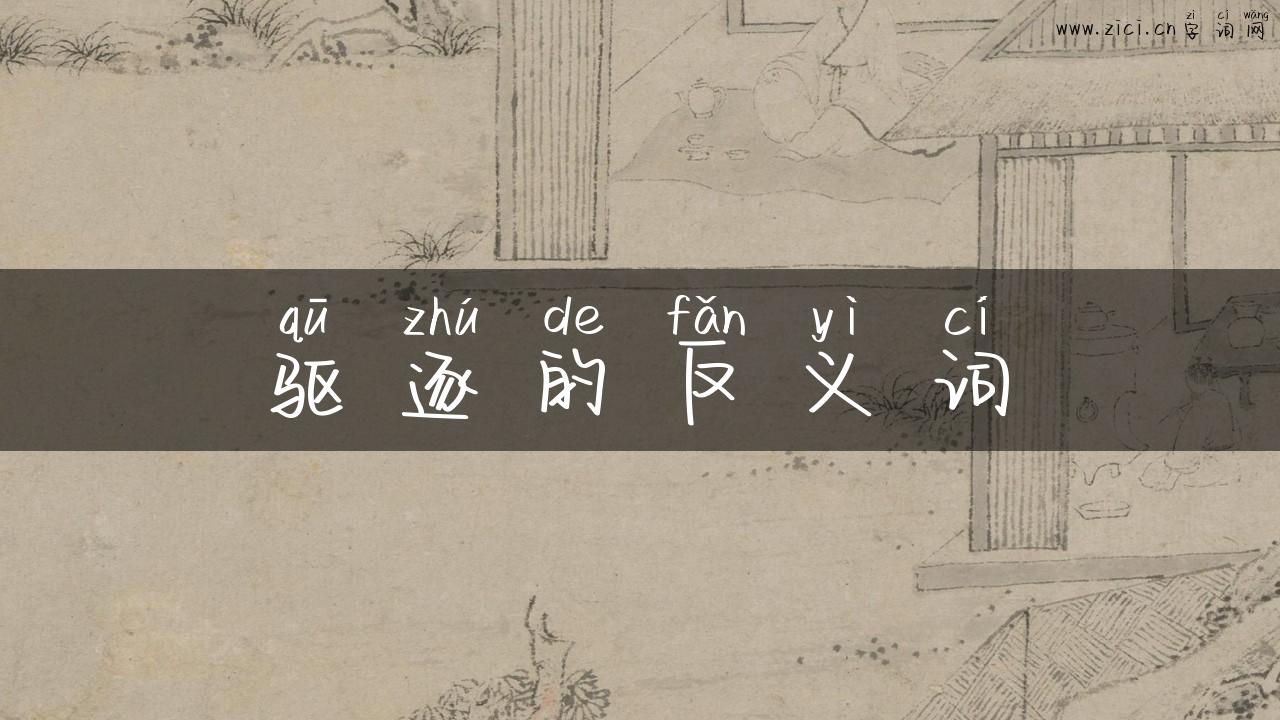 zì cí wǎng
www.zici.cn 字词网
qū zhú de fǎn yì cí
驱逐的反义词